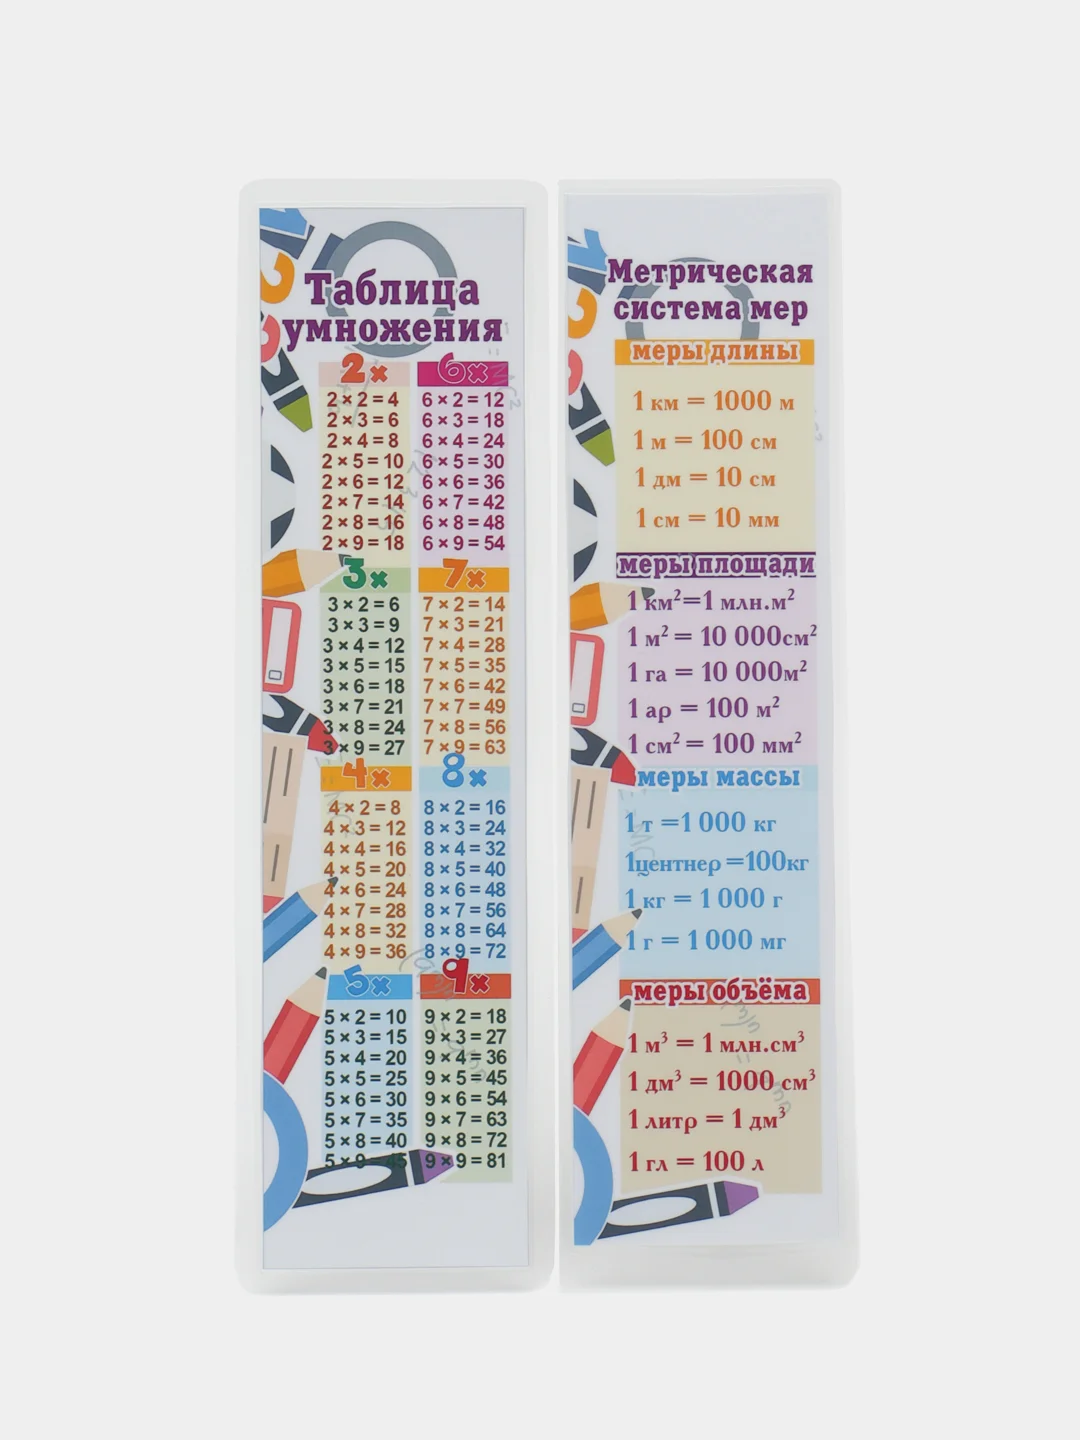 Таблица
умножения
2×
2 × 2 = 4
2 × 3 = 6
2 × 4 = 8
2 × 5 = 10
2 × 6 = 12
2 × 7 = 14
2 × 8 = 16
2 × 9 = 18
6×
6 × 2 = 12
6 × 3 = 18
6 × 4 = 24
6 × 5 = 30
6 × 6 = 36
6 × 7 = 42
6 × 8 = 48
6 × 9 = 54
3×
3 × 2 = 6
3 × 3 = 9
3 × 4 = 12
3 × 5 = 15
3 × 6 = 18
3 × 7 = 21
3 × 8 = 24
3 × 9 = 27
7×
7 × 2 = 14
7 × 3 = 21
7 × 4 = 28
7 × 5 = 35
7 × 6 = 42
7 × 7 = 49
7 × 8 = 56
7 × 9 = 63
4×
4 × 2 = 8
4 × 3 = 12
4 × 4 = 16
4 × 5 = 20
4 × 6 = 24
4 × 7 = 28
4 × 8 = 32
4 × 9 = 36
8×
8 × 2 = 16
8 × 3 = 24
8 × 4 = 32
8 × 5 = 40
8 × 6 = 48
8 × 7 = 56
8 × 8 = 64
8 × 9 = 72
5×
5 × 2 = 10
5 × 3 = 15
5 × 4 = 20
5 × 5 = 25
5 × 6 = 30
5 × 7 = 35
5 × 8 = 40
5 × 9 = 45
9×
9 × 2 = 18
9 × 3 = 27
9 × 4 = 36
9 × 5 = 45
9 × 6 = 54
9 × 7 = 63
9 × 8 = 72
9 × 9 = 81
Метрическая
система мер
меры длины
1 км = 1000 м
1 м = 100 см
1 дм = 10 см
1 см = 10 мм
меры площади
1 км²=1 млн.м²
1 м² = 10 000см²
1 га = 10 000м²
1 ар = 100 м²
1 см² = 100 мм²
меры массы
1 т =1 000 кг
1центнер =100кг
1 кг = 1 000 г
1 г = 1 000 мг
меры объёма
1 м³ = 1 млн.см³
1 дм³ = 1000 см³
1 литр = 1 дм³
1 гл = 100 л